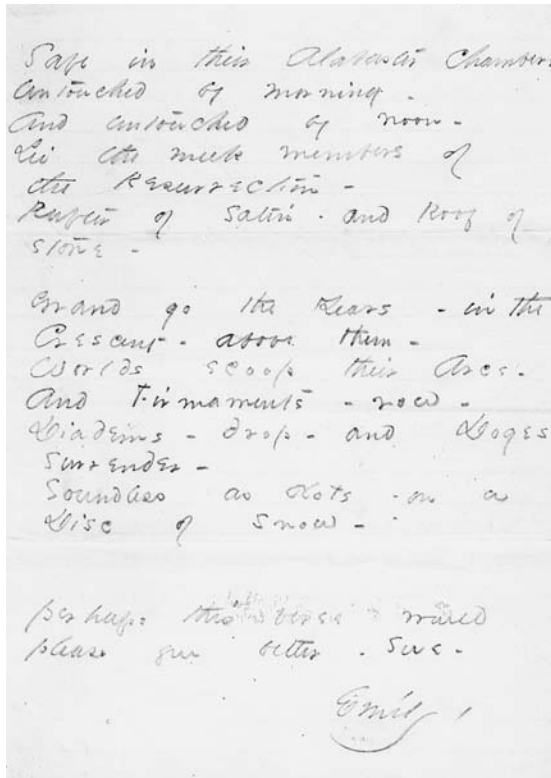 Safe in their Alabaster Chambers
Untouched by morning -
And untouched by noon -
Lie the meek members of
the Resurrection -
Rafter of Satin - and Roof of
Stone -
Grand go the Years - in the
Crescent - above them -
Worlds scoop their Arcs -
And Firmaments - row -
Diadems - drop - and Doges
Surrender -
Soundless as dots - on a
Disc of Snow -
Perhaps this verse would
please you better - Sue -
Emily